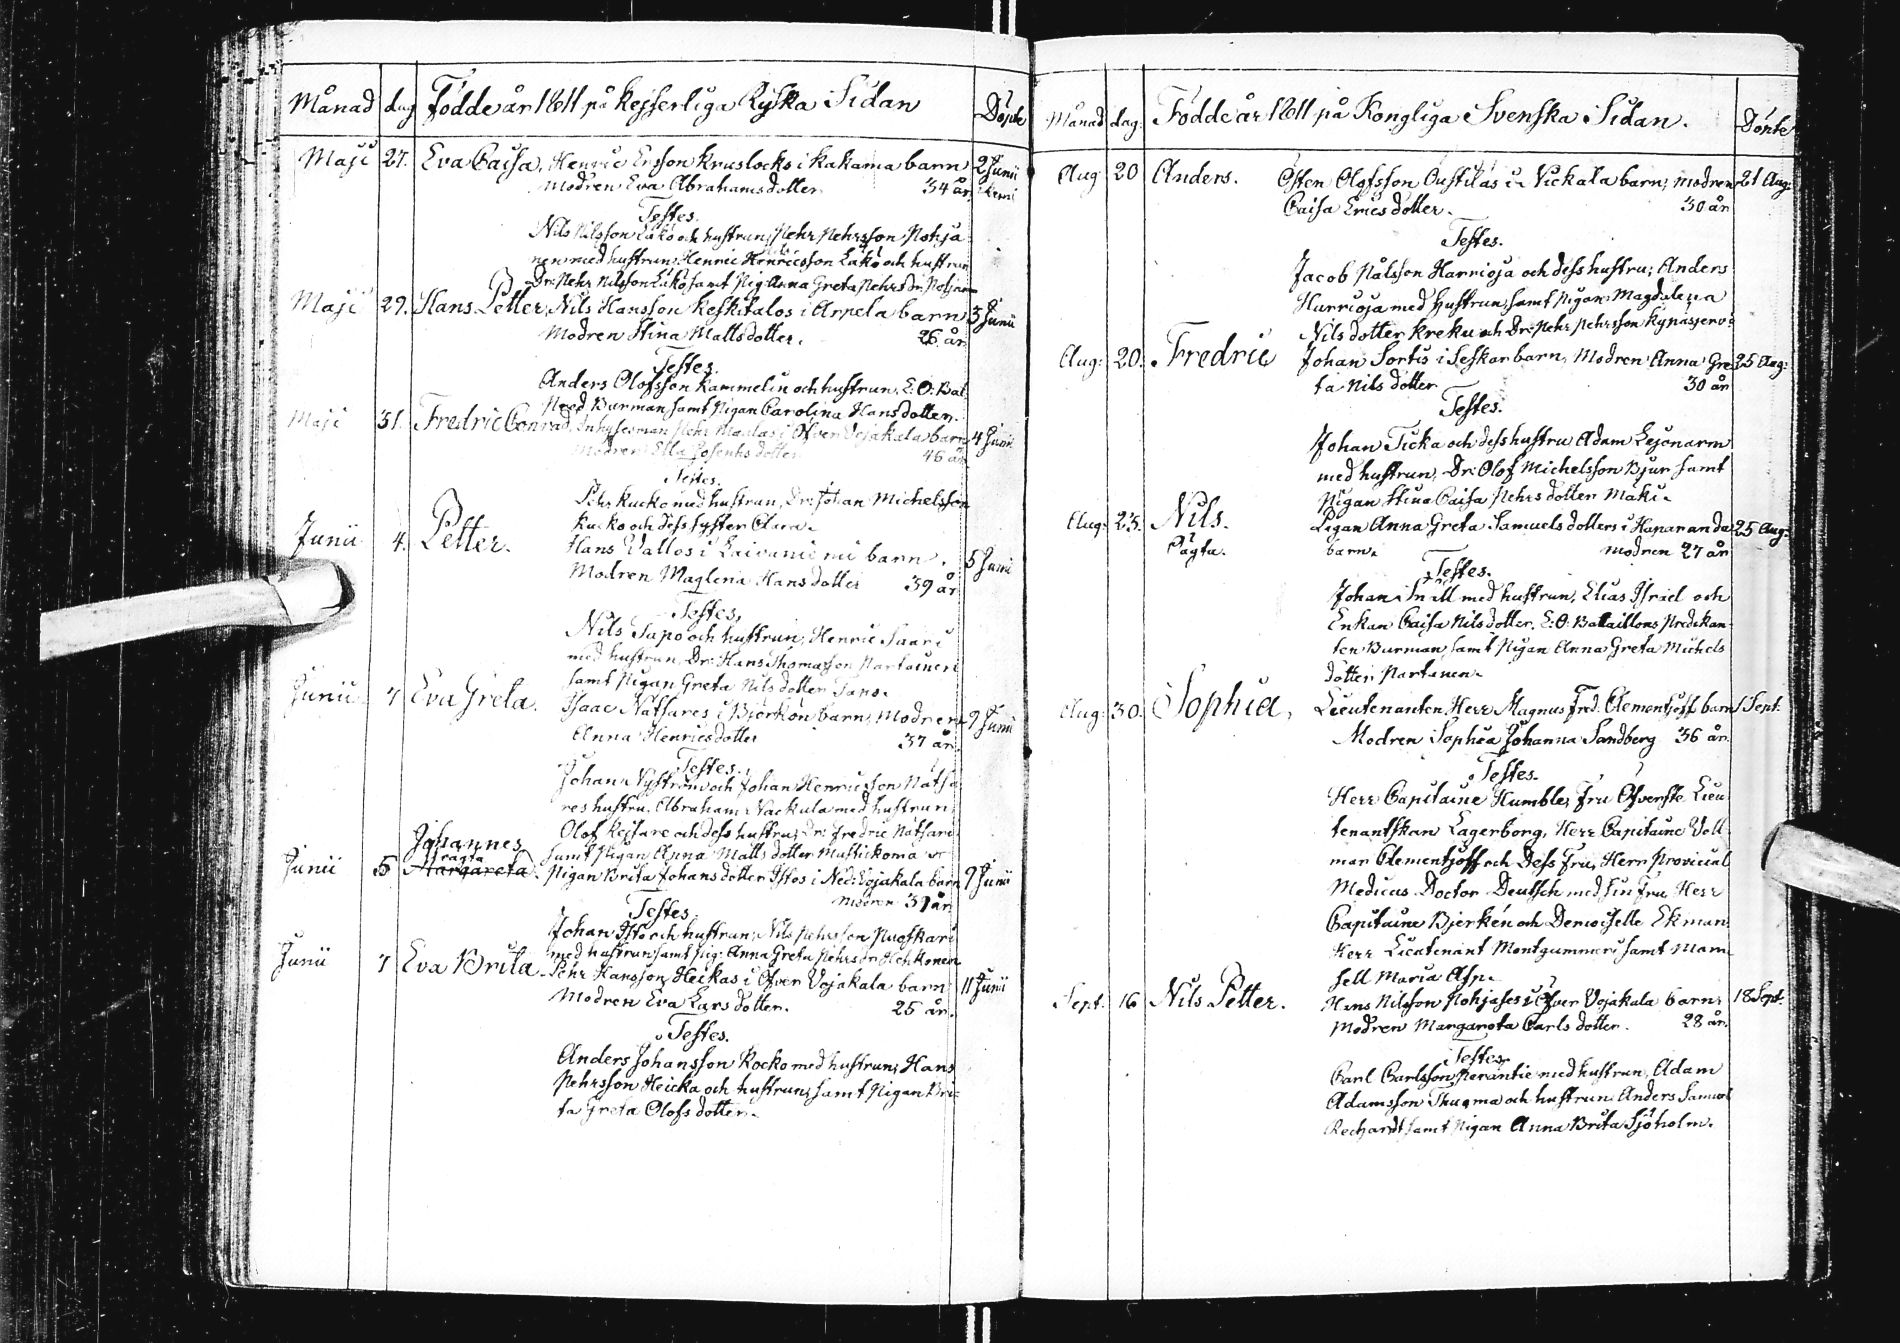 Månad dag Födde år 1811 på Kejserliga Ryska Sidan Döpte
Maji 27. Eva Caisa, Henric Ersson Kruslocks i Kakama barn 2 Junii
Modren Eva Abrahamsdotter 34 år,
Testes.
Nils Nilsson Lakö och hustrun, Pehr Pehrsson Pohja
nen med hustrun, Henric Henricsson Lakö och hustrun
Dr: Pehr Nilsson Lakö samt Pig: Anna Greta Pehrs dr: Pohjanen
Maji 29. Hans Petter, Nils Hansson Keskitalos i Arpela barn 3 Junii
Modren Stina Mattsdotter. 26 år.
Testes.
Anders Olofsson Kammelin och hustrun, E: O: Bat.
Pred Burman samt Pigan Carolina Hansdotter.
Maji 31. Fredric Conrad, Inhysesman Pehr i Öfver Vojakala barn 4 Junii
Modren Ella Josephsdotter 46 år
Testes.
Pehr Kucko med hustrun, Dr: Johan Michelsson
Kucko och dess syster Clara.
Junii 4. Petter. Hans Vallos i Laivaniemi barn. 5 Junii
Modren Maglena Hansdotter 39 år
Testes,
Nils Sapo och hustrun, Henric Saari
med hustrun, Dr: Hans Thomasson Partainen
samt Pigan Greta Nilsdotter Sans.
Junii 4 Eva Greta. Isaac Natsares i Björkön barn, Modren 9 Junii
Anna Henricsdotter 37 år.
Testes.
Johan Nyström och Johan Henricsson Natsa
res hustru. Abraham Vackula med hustrun
Olof Kejsare och dess hustru, Dr: Fredric Natsare
samt Pigan Anna Mattsdotter Mustickoma
Johannes
oägta
Junii 5 Margareta. Pigan Brita Johansdotter Istos i Ned: Vojakala barn 9 Junii
modren 31 år
Testes
Johan Isto och hustrun, Nils Pehrsson Puotkari
med hustrun samt Pig: Anna Greta Pehrs dr Hehkonen
Junii 7 Eva Brita Pehr Hansson Heickas i Öfver Vojakala barn 11 Junii
Modren Eva Larsdotter. 25 år.
Testes.
Anders Johansson Rocko med hustrun, Hans
Pehrsson Heicka och hustrun, samt Pigan Bri-
ta Greta Olofsdotter.
Månad dag. Födde år 1811 på Kongliga Svenska Sidan. Döpte
Aug 20 Anders. Östen Olofsson Oustilas i Vickala barn, modren 21 Aug:
Caisa Ericsdotter. 30 år
Testes.
Jacob Pålsson Harrioja och dess hustru; Anders
Hurrioja med hustrun, samt Pigan Magdalena
Nilsdotter Kreku och Dr: Pehr Pehrsson Kypäsjervi
Aug: 20. Fredric Johan Sortis i Seskar barn, Modren Anna Gre 25 Aug:
ta Nilsdotter 30 år
Testes.
Johan Ticka och dess hustru Adam Lejonarm
med hustrun, Dr: Olof Michelsson Bjur samt
Pigan Stina Caisa Pehrsdotter Maki.
Aug: 23. Nils. Pigan Anna Greta Samuelsdotters i Haparanda 25 Aug:
Oägta. barn. modren 27 år
Testes.
Johan Snäll med hustrun, Elias Israel och
Enkan Caisa Nilsdotter, E: O: Bataillons Predikan
ten Burman, samt Pigan Anna Greta Michels
dotter Partanen.
Aug: 30. Sophia, Lieutenanten Herr Magnus Fred. Clementjoff barn 1 Sept.
Modren Sophia Johanna Sandberg 36 år.
Testes.
Herr Capitaine Humble, Fru Öfverste Lieu
tenantskan Lagerborg, Herr Capitaine Voll
mar Clementjoff och Dess Fru, Herr Provicial
Medicus Doctor Deutsch med sin Fru Herr
Capitaine Bjerkén och Demoiselle Ekman
Herr Lieutenant Montgummeri samt Mam
sell Maria Asp.
Sept. 16 Nils Petter. Hans Nilsson Pohjases i Öfver Vojakala barn, 18 Sept.
Modren Margareta Carlsdotter. 28 år.
Testes.
Carl Carlsson Perantie med hustrun, Adam
Adamsson med och hustrun Anders Samuel
Rechardt samt Pigan Anna Brita Sjöholm.